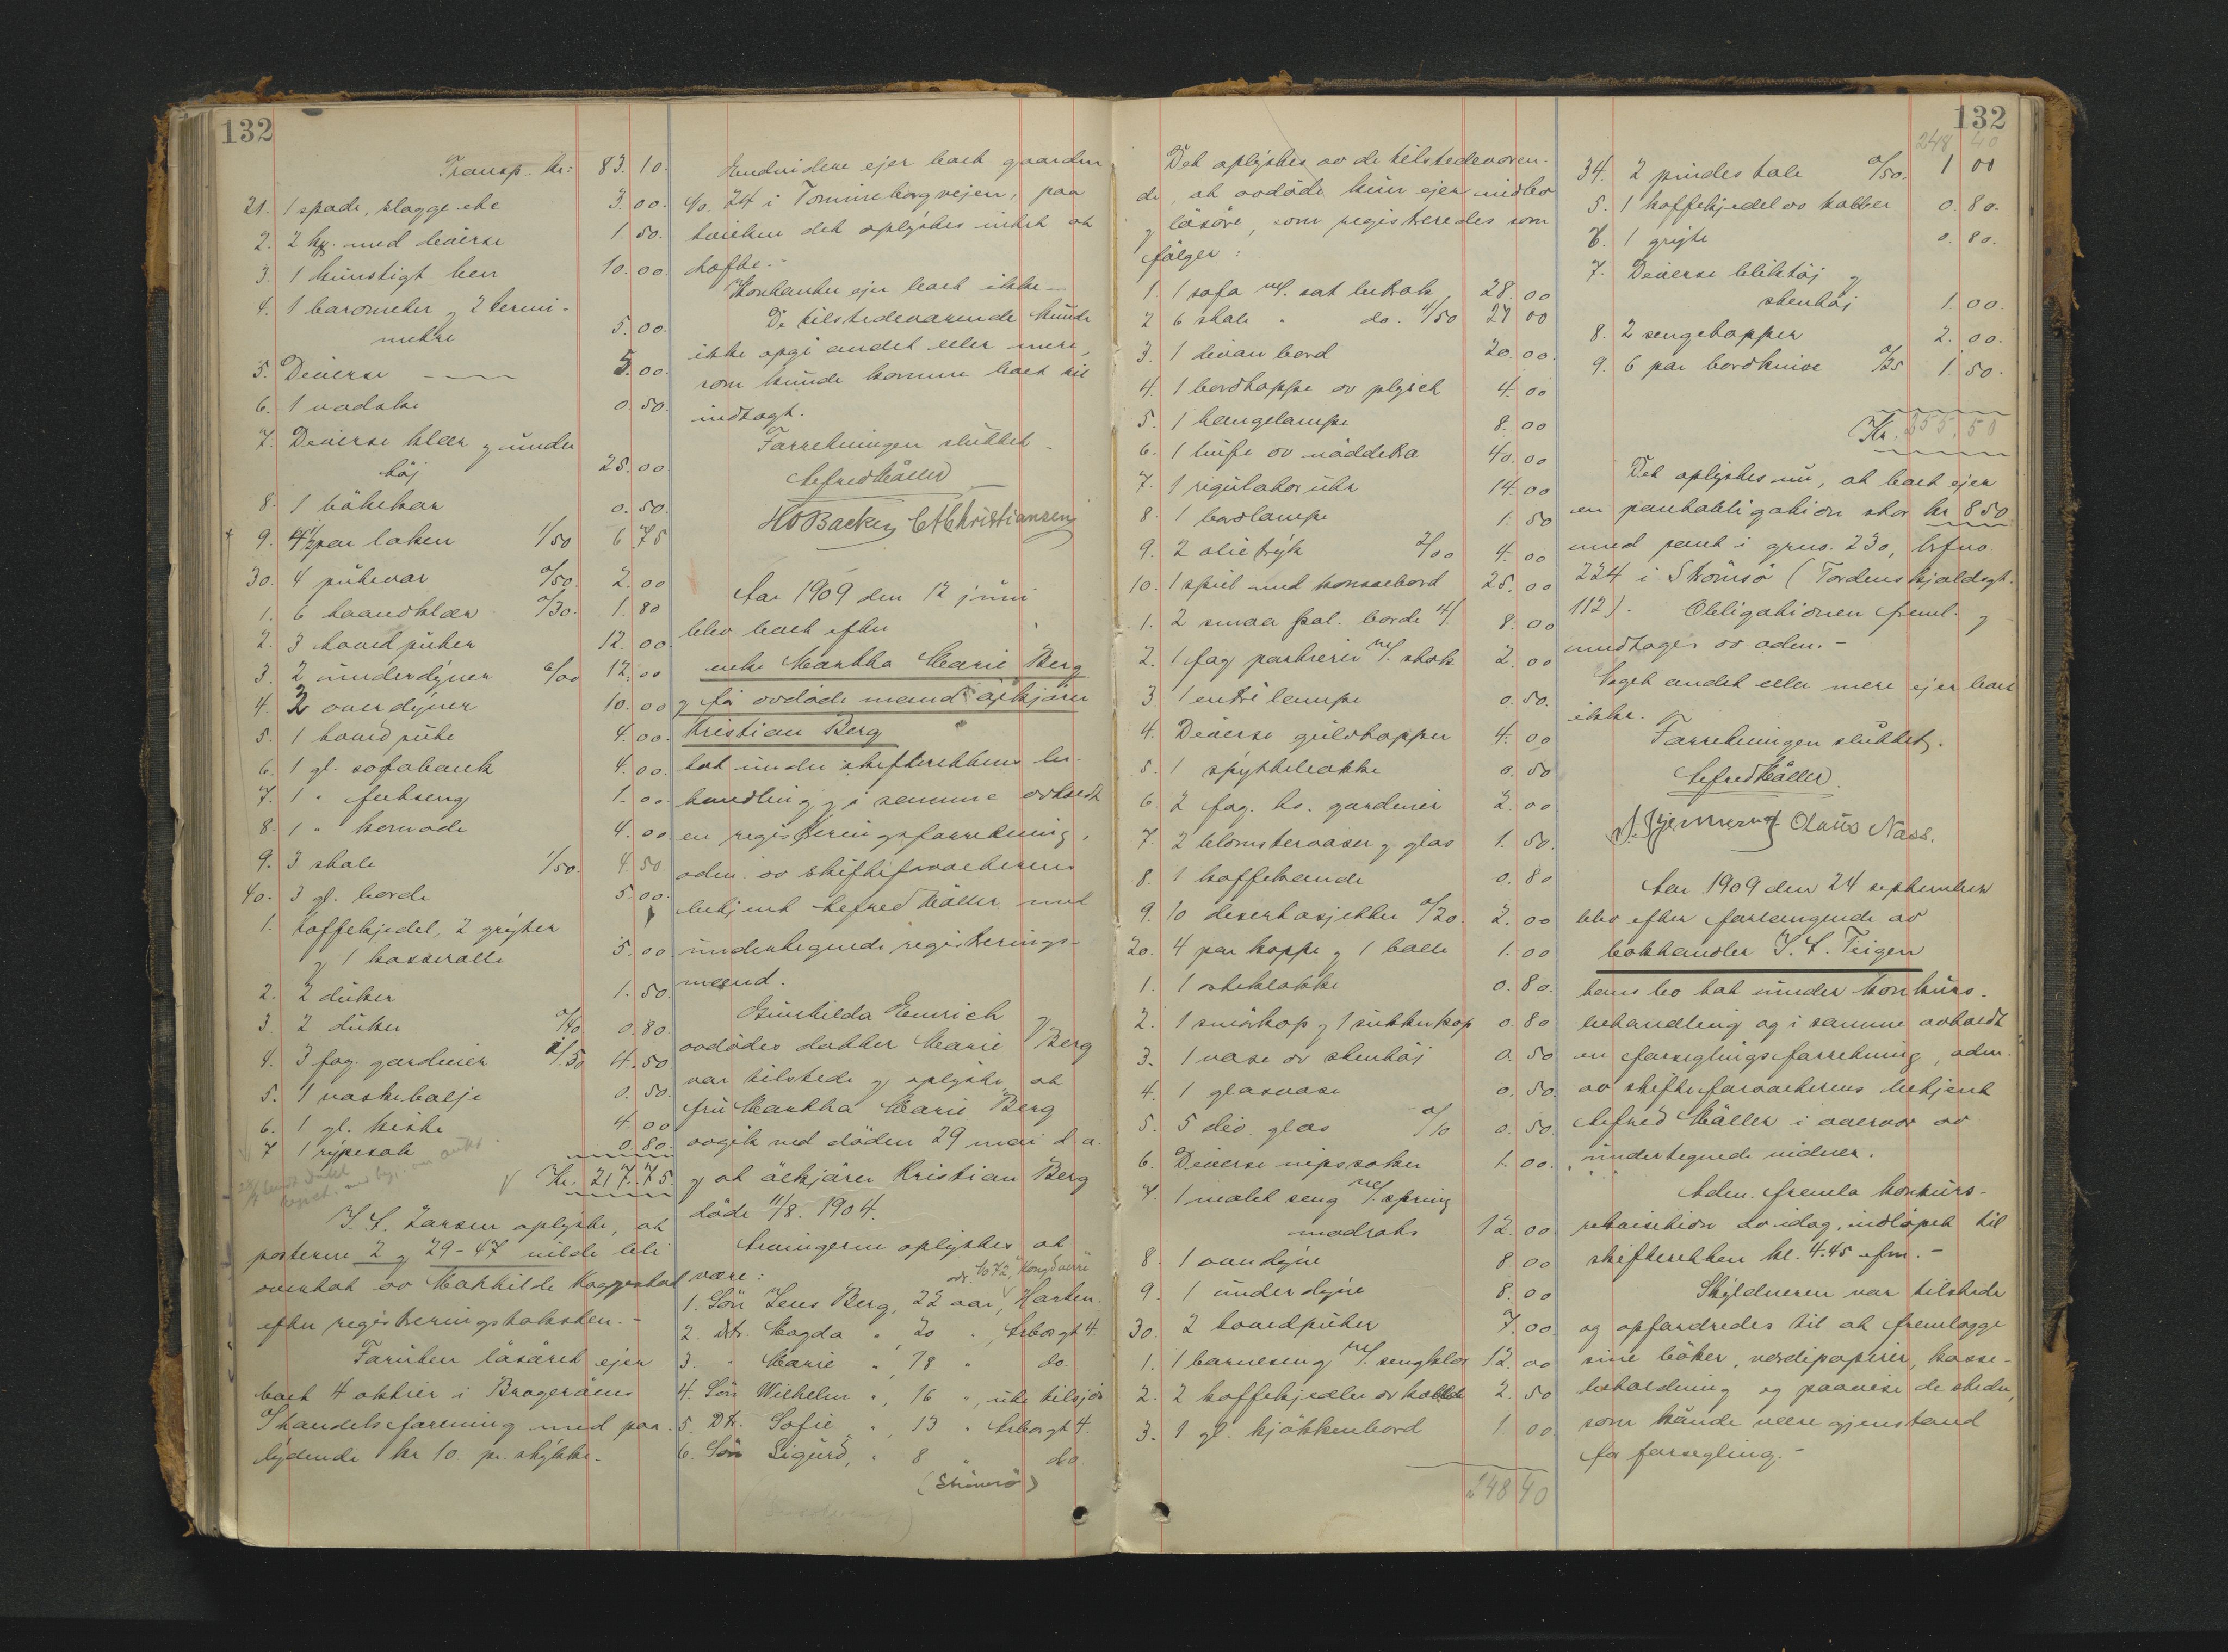 132
Transp. kr: 83.10.
21. 1 spade, slagge etc 3.00.
2. 2 kg. med diverse 1.50.
3. 1 kunstigt ben 10.00.
4. 1 barometer og 2 termi-
metre 5.00.
5. Diverse 5.00.
6. 1 vadske 0.50.
7. Diverse klær og under
töj 25.00.
8. 1 bökekar 0.50.
9. 4½ par laken 1/50 6.75
30. 4 putevar 0/50. 2.00
1. 6 haandklær 0/30. 1.80
2. 3 hoved puter 12.00
3. 2 underdyner 6/00 12.00
4. 2 overdyner 10.00
5. 1 hoved pute 4.00.
6. 1 gl. sofabænk 4.00.
7. 1 " feltseng 1.00
8. 1 " komode 4.00.
9. 3 stole 1/50. 4.50
40. 3 gl. borde 5.00.
1. kaffekjedel, 2 gryter
og 1 kasserolle 5.00
2. 2 duker 1.50
3. 2 duker 0/40 0.80
4. 3 fag. gardiner 1/50 4.50
5. 1 vaskebalje 0.50.
6. 1 gl. kiste 4.00
7 1 rypesak 0.80.
Kr. 217.75.
J. L. Larsen oplyste, at
posterne 2 og 29-47 vilde bli
overtat av Mathilde
efter registreringstaksten.-
Foruten lösöret ejer
boet 4 aktier i Brageröens
Handelsforening med paa-
lydende kr 10. pr. stykke.
Endvidere ejer boet gaarden
No. 24 i Tomineborgvejen, paa
hvilken det oplystes intet at
hefte.-
Kontanter ejer boet ikke-
De tilstedeværende kunde
ikke opgi andet eller mere,
som kunde komme boet til
indtægt.
Forretningen sluttet
Alfred Möller
HO Backe C A Christiansen
Aar 1909 den 12 juni
blev boet efter
enke Martha Marie Berg
og för avdöde mand ölkjörer
Kristian Berg
tat under skifterettens be-
handling og i samme avholdt
en registreringsforretning,
adm. av skifteforvalterens
betjent Alfred Möller med
undertegnede registrerings-
mænd.
Gunhilda Emrich
avdödes datter Marie Berg
var tilstede og oplyste, at
fru Martha Marie Berg
avgik ved döden 29 mai d.a.
og at ölkjörer Kristian Berg
döde 11/8. 1904.
Arvingerne oplystes at
være:
1. Sön Jens Berg, 22 aar,
2. Dtr. Magda " 20 " Arbosgt 4.
3. " Marie " 18 " do.
4. Sön Wilhelm ", 16 ", ute tilsjös
5. Dtr. Sofie " 13 " Arbosgt 4.
6. Sön Sigurd, " 8 " do
(Strömsö)
132
Det oplystes av de tilstedeværen-
de, at avdöde kun ejer indbo
og lösöre, som registreredes som
fölger:
1. 1 sofa m/. sat betræk, 28.00
2 6 stole " do. 4/50 27 00
3. 1 divan bord 20.00.
4. 1 bordteppe av plysch 4.00
5. 1 hængelampe 8.00
6. 1 buffe av nöddetræ 40.00
7. 1 regulator uhr 14.00
8. 1 bordlampe 1.50
9. 2 olietryk 2/00 4.00
10. 1 speil med konsolbord 25.00
1. 2 smaa pol. borde 4/. 8.00
2. 1 fag portierer m/. stok 2.00
3 1 entré lampe 0.50.
4. Diverse gulvtepper 4.00
5. 1 spyttebakke 0.50
6. 2 fag. hv. gardiner 2.00
7. 2 blomstervaser og glas 1.50.
8. 1 kaffekande 0.80
9. 10 desertasjetter 0/20. 2.00
20. 4 par koppe og 1 bolle 1.00
1. 1 osteklokke 0.80.
2. 1 smörkop og 1 sukkerkop 0.80
3. 1 vase av stentöj 0.50
4. 1 glasvase 0.50.
5. 5 div. glas 0/10 0.50.
6. Diverse nipssaker 1.00.
7 1 malet seng m/. spring
madrats 12.00.
8. 1 overdyne 8.00
9. 1 underdyne 8.00
30. 2 hovedputer 7.00.
1. 1 barneseng m/. sengklær 12.00
2. 2 kaffekjedler av kobber 2.50
3. 1 gl. kjökkenbord 1.00.
248 40
132
248 40
34. 2 pindestole 0/50. 1 00
5. 1 kaffekjedel av kobber 0.80.
6. 1 gryte 0.80.
7. Diverse bliktöj og
stentöj 1.00.
8. 2 sengetepper 2.00.
9. 6 par bordknive 0/25 1 50.
Kr. 255.50
Det oplystes nu, at boet ejer
en pantobligation stor kr 850
med pant i grno. 230, brfno.
224 i Strömsö (Tordenskjoldsgt.
112). Obligationen freml. og
mottages av adm.-
Noget andet eller mere ejer boet
ikke.
Forretningen sluttet.
Alfred Möller.
Olaus Næss.
Aar 1909 den 24 september
blev efter forlangende av
bokhandler J. L. Teigen
hans bo tat under konkurs-
behandling og i samme avholdt
en forseglingsforretning, adm.
av skifteforvalterens betjent
Alfred Möller i nærvær av
undertegnede vidner.
Adm. fremla konkurs-
rekvisition av idag, indlöpet til
skifteretten kl. 4.45 efm.-
Skyldneren var tilstede
og opfordredes til at fremlægge
sine böker, værdipapirer, kasse-
beholdning og paavise de steder,
som kunde være gjenstand
for forsegling.-